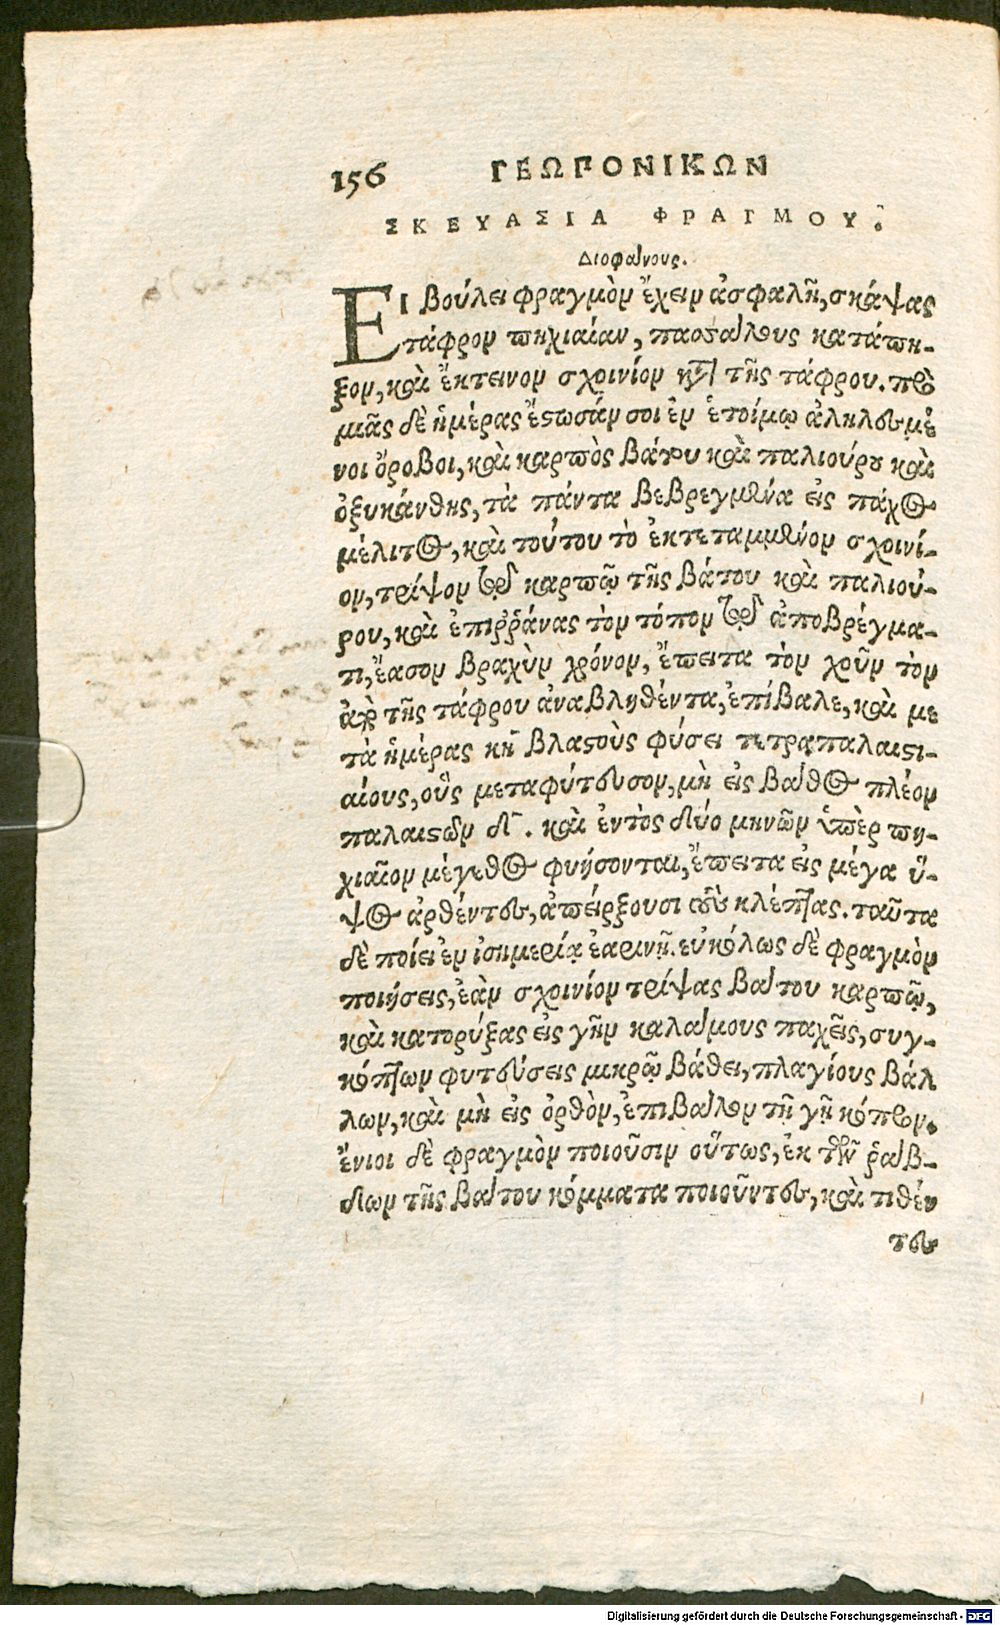 156 ΓΕΩΠΟΝΙΚΩΝ
ΣΚΕΥΑΣΙΑ ΦΡΑΓΜΟΥ.
Διοφάνους.
ΕΙ βούλει φραγμὸν ἔχειν ἀσφαλῆ, σκάψας
τάφρον πηχιαίαν, πασσάλους κατάπη-
ξον, καὶ ἔκτεινον σχοινίον κατὰ τῆς τάφρου. πρὸ
μιᾶς δὲ ἡμέρας ἔστωσάν σοι ἐν ἑτοίμῳ ἀληλεσμέ
νοι ὄροβοι, καὶ καρπὸς βάτου καὶ παλιούρου καὶ
ὀξυκάνθης, τὰ πάντα βεβρεγμένα εἰς πάχος
μέλιτος, καὶ τούτου τὸ ἐκτεταμμένον σχοινί-
ον, τρίψον τῷ καρπῷ τῆς βάτου καὶ παλιού-
ρου, καὶ ἐπιῤῥάνας τὸν τόπον τῷ ἀποβρέγμα-
τι, ἔασον βραχὺν χρόνον, ἔπειτα τὸν χοῦν τὸν
ἀπὸ τῆς τάφρου ἀναβληθέντα, ἐπίβαλε, καὶ με
τὰ ἡμέρας κη βλαστοὺς φύσει τετραπαλαιστι-
αίους, οὓς μεταφύτευσον, μὴ εἰς βάθος πλέον
παλαιστῶν δ. καὶ ἐντὸς δύο μηνῶν ὑπὲρ πη-
χιαῖον μέγεθος φυήσονται, ἔπειτα εἰς μέγα ὕ-
ψος ἀρθέντες, ἀπείρξουσι τοὺς κλέπτας. ταῦτα
δὲ ποίει ἐν ἰσημερίᾳ ἐαρινῇ. εὐκόλως δὲ φραγμὸν
ποιήσεις, ἐὰν σχοινίον τρίψας βάτου καρπῷ,
καὶ κατορύξας εἰς γῆν καλάμους παχεῖς, συγ-
κόπτων φυτεύσεις μικρῷ βάθει, πλαγίους βάλ
λων, καὶ μὴ εἰς ὀρθὸν, ἐπιβάλλων τῇ γῇ κόπρον.
ἔνιοι δὲ φραγμὸν ποιοῦσιν οὕτως, ἐκ τῶν ῥάβ-
δων τῆς βάτου κόμματα ποιοῦντες, καὶ τιθέν
τες
Digitalisierung gefördert durch die Deutsche Forschungsgemeinschaft - DFG